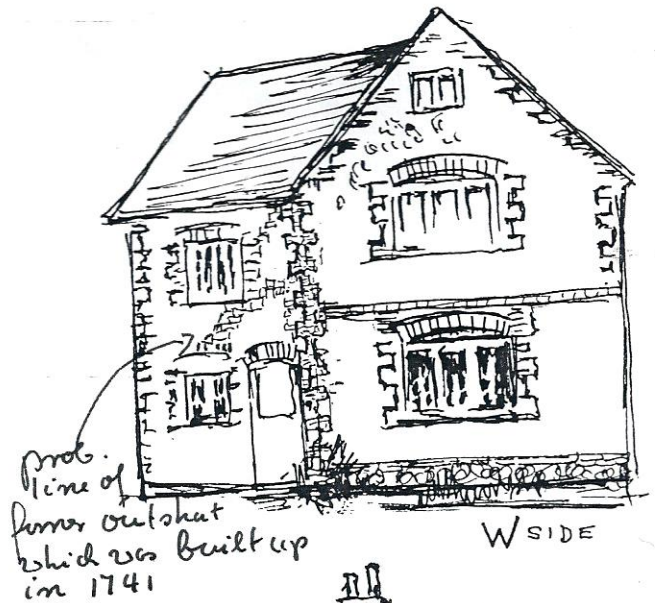 prob.
line of
former outshut
which was built up
in 1741
W SIDE